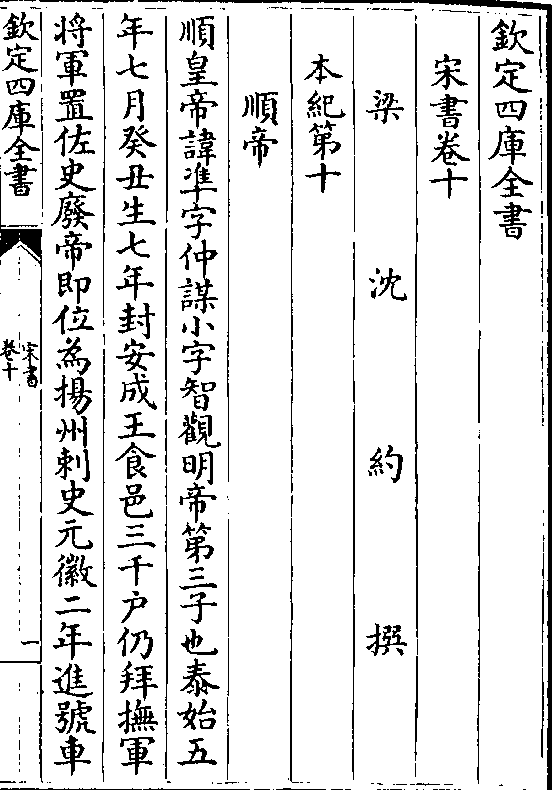 欽定四庫全書
宋書卷十
梁沈約撰
本紀第十
順帝
順皇帝諱準字仲謀小字智觀明帝第三子也泰始五
年七月癸丑生七年封安成王食邑三千户仍拜撫軍
將軍置佐史廢帝即位為揚州刺史元徽二年進號車
欽定四庫全書
宋書
卷十
一